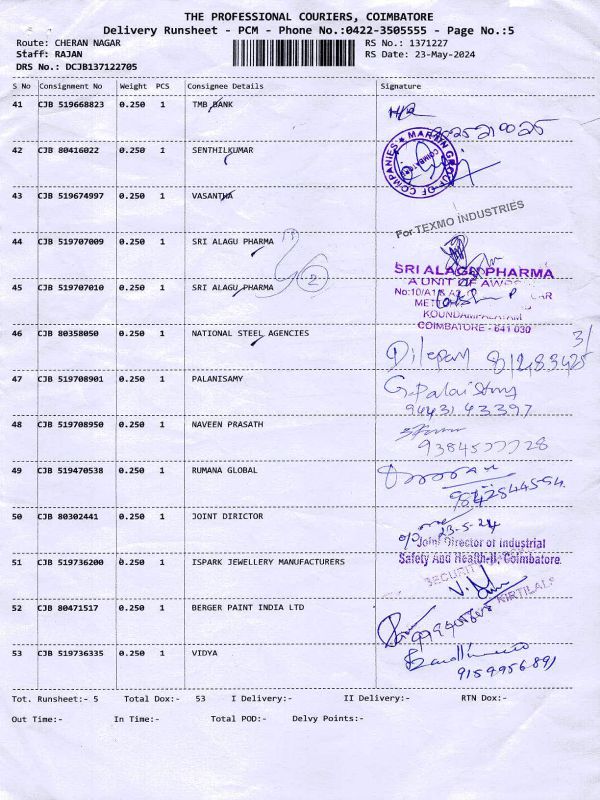 THE PROFESSIONAL COURIERS, COIMBATORE
Delivery Runsheet - PCM - Phone No.:0422-3505555 - Page No.:5
Route: CHERAN NAGAR RS No.: 1371227
Staff: RAJAN RS Date: 23-May-2024
DRS No.: DCJB137122705
S No Consignment No Weight PCS Consignee Details Signature
41 CJB 519668823 0.250 1 TMB BANK
MARTIN GROUP OF COMPANIES
COIMBATORE
42 CJB 80416022 0.250 1 SENTHILKUMAR
43 CJB 519674997 0.250 1 VASANTHA
For TEXMO INDUSTRIES
44 CJB 519707009 0.250 1 SRI ALAGU PHARMA
2
SRI ALAGU PHARMA
A UNIT OF
45 CJB 519707010 0.250 1 SRI ALAGU PHARMA
KOUNDAMPALAYAM
COIMBATORE - 641 030
46 CJB 80358050 0.250 1 NATIONAL STEEL AGENCIES
47 CJB 519708901 0.250 1 PALANISAMY
94431 43397
48 CJB 519708950 0.250 1 NAVEEN PRASATH
49 CJB 519470538 0.250 1 RUMANA GLOBAL
50 CJB 80302441 0.250 1 JOINT DIRICTOR
23-5-24
Joint Director of Industrial
51 CJB 519736200 0.250 1 ISPARK JEWELLERY MANUFACTURERS
Safety And Health-II, Coimbatore.
SECURITY
KIRTILALS
52 CJB 80471517 0.250 1 BERGER PAINT INDIA LTD
53 CJB 519736335 0.250 1 VIDYA
9159956891
Tot. Runsheet:- 5 Total Dox:- 53 I Delivery:- II Delivery:- RTN Dox:-
Out Time:- In Time:- Total POD:- Delvy Points:-